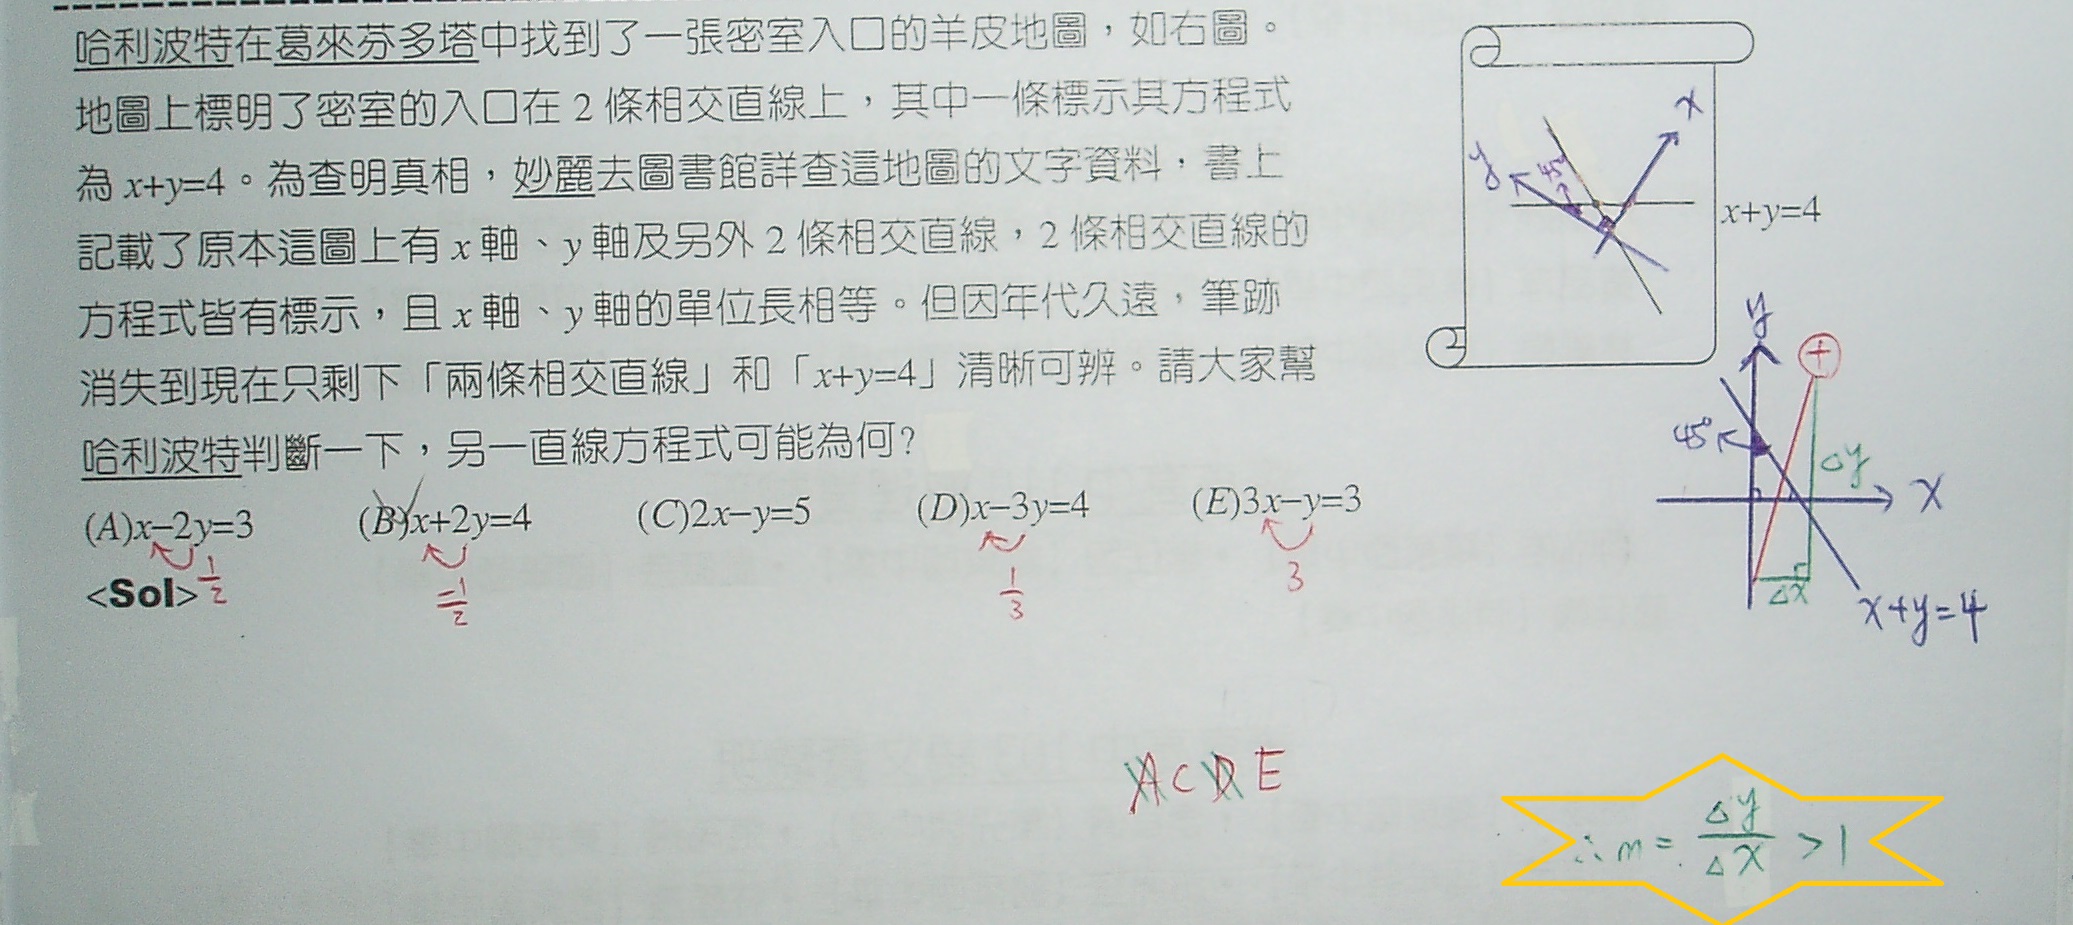 哈利波特在葛來芬多塔中找到了一張密室入口的羊皮地圖，如右圖。
地圖上標明了密室的入口在 2 條相交直線上，其中一條標示其方程式
為 x+y=4。為查明真相，妙麗去圖書館詳查這地圖的文字資料，書上
記載了原本這圖上有 x 軸、y 軸及另外 2 條相交直線，2 條相交直線的
方程式皆有標示，且 x 軸、y 軸的單位長相等。但因年代久遠，筆跡
消失到現在只剩下「兩條相交直線」和「x+y=4」清晰可辨。請大家幫
哈利波特判斷一下，另一直線方程式可能為何?
(A)x−2y=3 (B)x+2y=4 (C)2x−y=5 (D)x−3y=4 (E)3x−y=3
1/2 −1/2 1/3 3
<Sol>
x
y
45°
x+y=4
y
+
45°
Δy
x
Δx
x+y=4
A C D E
∴ m = Δy/Δx > 1